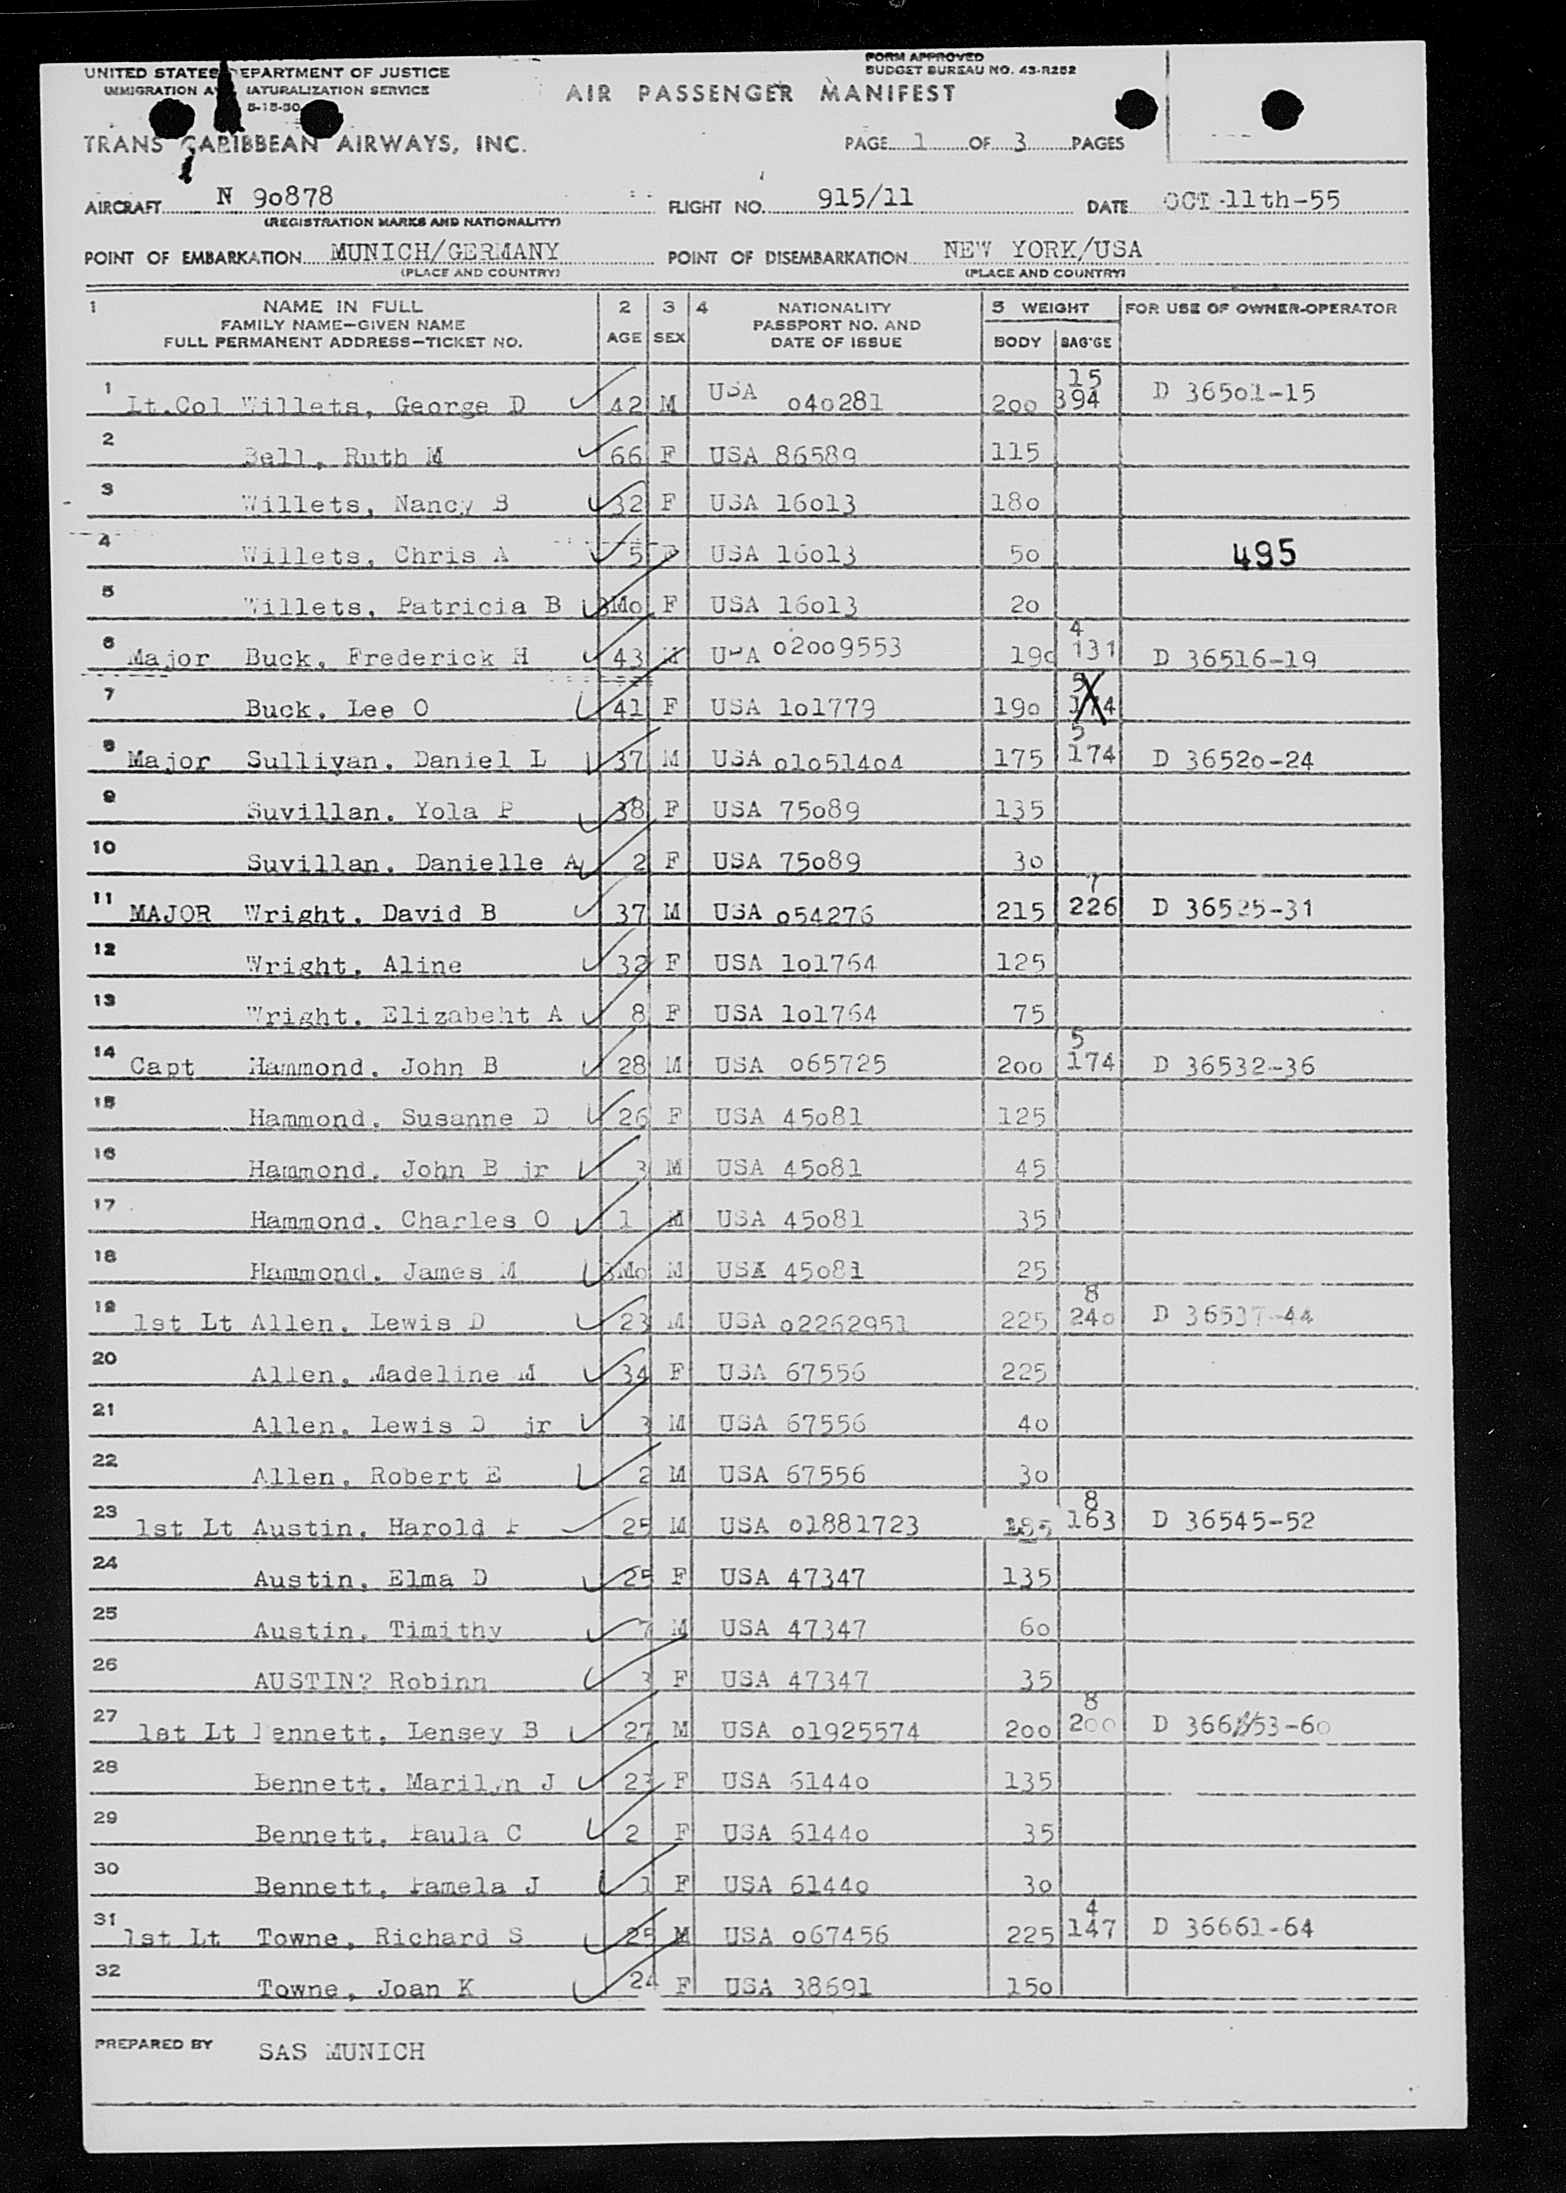 FORM APPROVED
UNITED STATES DEPARTMENT OF JUSTICE BUDGET BUREAU NO. 43-R252
IMMIGRATION AND NATURALIZATION SERVICE AIR PASSENGER MANIFEST
5-15-50
TRANS CARIBBEAN AIRWAYS, INC. PAGE 1 OF 3 PAGES
AIRCRAFT N 90878 FLIGHT NO. 915/11 DATE OCT-11th-55
(REGISTRATION MARKS AND NATIONALITY)
POINT OF EMBARKATION MUNICH/GERMANY POINT OF DISEMBARKATION NEW YORK/USA
(PLACE AND COUNTRY) (PLACE AND COUNTRY)
1 NAME IN FULL 2 3 4 NATIONALITY 5 WEIGHT FOR USE OF OWNER-OPERATOR
FAMILY NAME—GIVEN NAME PASSPORT NO. AND
FULL PERMANENT ADDRESS—TICKET NO. AGE SEX DATE OF ISSUE BODY BAG'GE
1 Lt.Col Willets, George D 42 M USA 040281 200 15 394 D 36501-15
2 Bell, Ruth M 66 F USA 86589 115
3 Willets, Nancy B 32 F USA 16013 180
4 Willets, Chris A 5 USA 16013 50 495
5 Willets, Patricia B Mo F USA 16013 20
6 Major Buck, Frederick H 43 M USA 02009553 190 4 131 D 36516-19
7 Buck, Lee O 41 F USA 101779 190 5 174
8 Major Sullivan, Daniel L 37 M USA 01051404 175 5 174 D 36520-24
9 Suvillan, Yola P 38 F USA 75089 135
10 Suvillan, Danielle A 2 F USA 75089 30
11 MAJOR Wright, David B 37 M USA 054276 215 7 226 D 36525-31
12 Wright, Aline 32 F USA 101764 125
13 Wright, Elizabeht A 8 F USA 101764 75
14 Capt Hammond, John B 28 M USA 065725 200 5 174 D 36532-36
15 Hammond, Susanne D 26 F USA 45081 125
16 Hammond, John B jr 3 M USA 45081 45
17 Hammond, Charles O 1 M USA 45081 35
18 Hammond, James M Mo M USA 45081 25
19 1st Lt Allen, Lewis D 23 M USA 02262951 225 8 240 D 36537-44
20 Allen, Madeline M 34 F USA 67556 225
21 Allen, Lewis D jr 3 M USA 67556 40
22 Allen, Robert E 2 M USA 67556 30
23 1st Lt Austin, Harold F 25 M USA 01881723 8 163 D 36545-52
24 Austin, Elma D 25 F USA 47347 135
25 Austin, Timithy 7 M USA 47347 60
26 AUSTIN? Robinn 3 F USA 47347 35
27 1st Lt Bennett, Lensey B 27 M USA 01925574 200 8 200 D 53-60
28 Bennett, Marilyn J 23 F USA 61440 135
29 Bennett, Paula C 2 F USA 61440 35
30 Bennett, Pamela J 1 F USA 61440 30
31 1st Lt Towne, Richard S 25 M USA 067456 225 4 147 D 36661-64
32 Towne, Joan K 24 F USA 38691 150
PREPARED BY SAS MUNICH